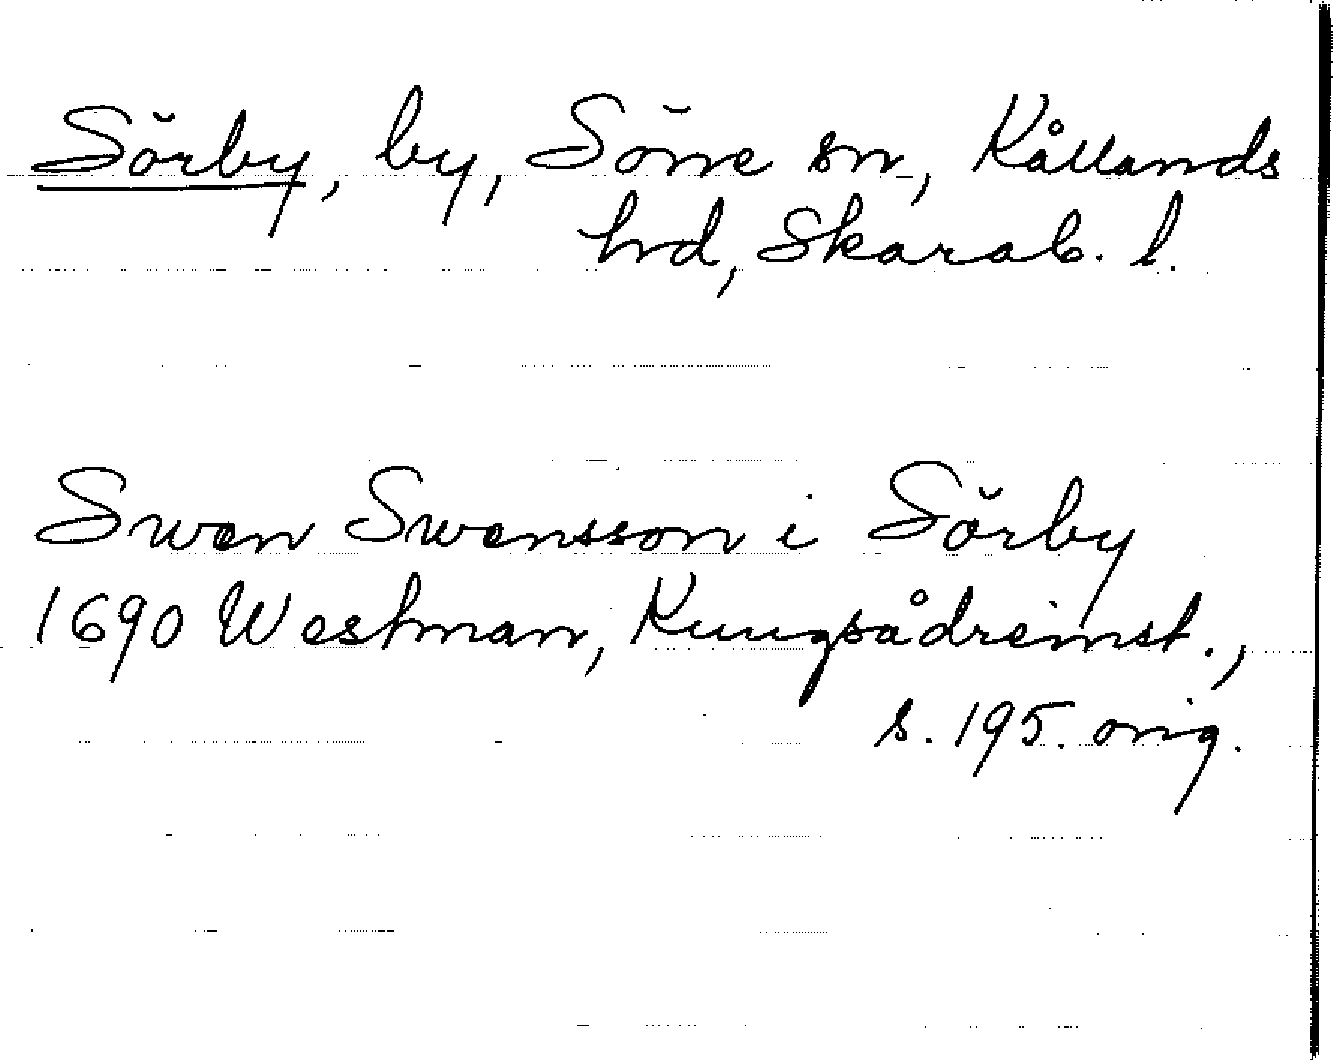 Sörby, by, Söne sn, Kållands
hd, Skarab. l.
Swen Swensson i Sörby
1690 Westman, Kungsådreinst.,
s. 195. orig.